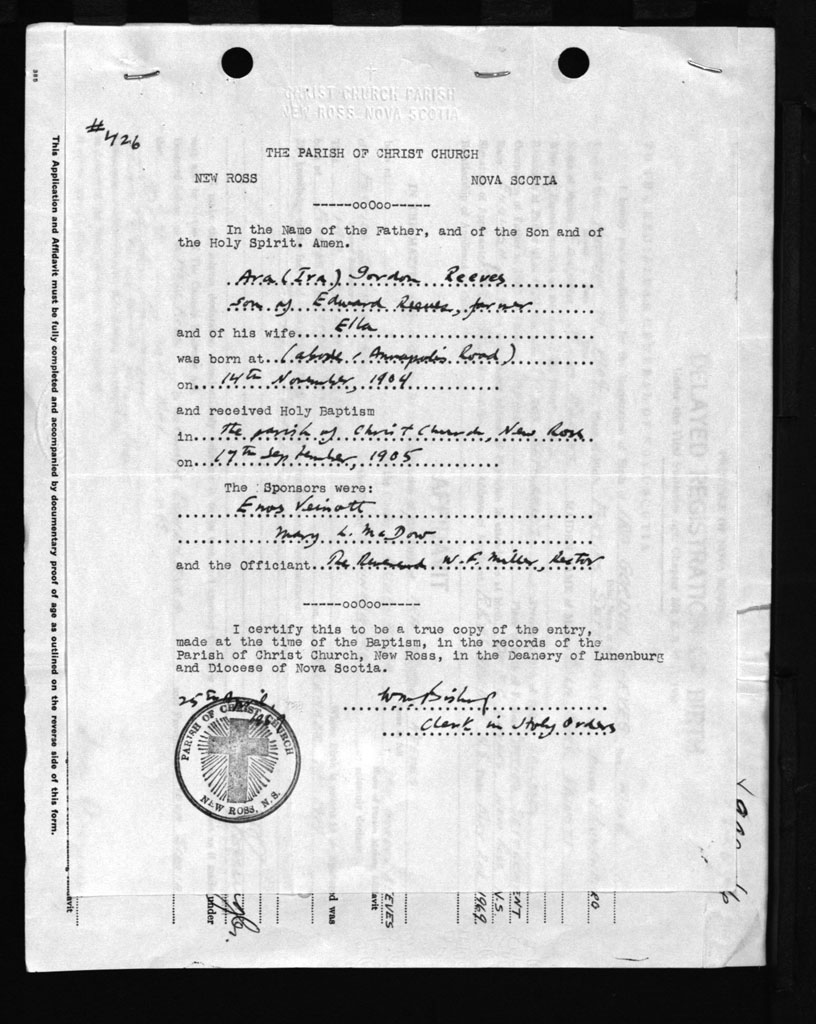 CHRIST CHURCH PARISH
NEW ROSS NOVA SCOTIA
#426
THE PARISH OF CHRIST CHURCH
NEW ROSS NOVA SCOTIA
-----ooOoo-----
In the Name of the Father, and of the Son and of
the Holy Spirit. Amen.
Ara (Ira) Gordon Reeves
son of Edward Reeves, farmer
and of his wife....Ella
was born at..(above, Annapolis Road)
on...14th November, 1904
and received Holy Baptism
in...The parish of Christ Church, New Ross
on...17th September, 1905
The Sponsors were:
Enos Veinott
Mary L. McDow
and the Officiant..The Reverend W.F. Miller, Rector
-----ooOoo-----
I certify this to be a true copy of the entry,
made at the time of the Baptism, in the records of the
Parish of Christ Church, New Ross, in the Deanery of Lunenburg
and Diocese of Nova Scotia.
Wm. Bishop
Clerk in Holy Orders
PARISH OF CHRIST CHURCH
NEW ROSS, N.S.
This Application and Affidavit must be fully completed and accompanied by documentary proof of age as outlined on the reverse side of this form.
under
d was
EVES
avit
1969
V.S.
ENT
avit